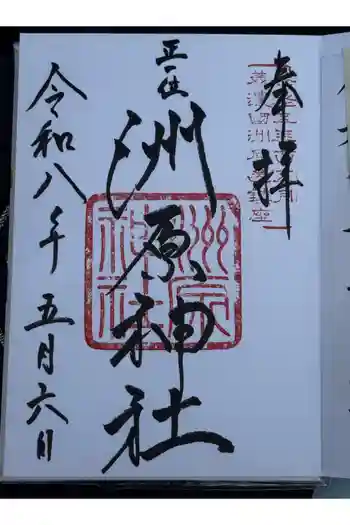 奉拝
正一位
洲原神社
洲原神社
令和八年五月六日